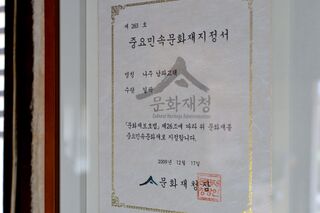 제 263 호
중요민속문화재지정서
명칭 나주 남파고택
수량 일곽
문화재청
Cultural Heritage Administration
「문화재보호법」 제26조에 따라 위 문화재를
중요민속문화재로 지정합니다.
2009년 12월 17일
문화재청장